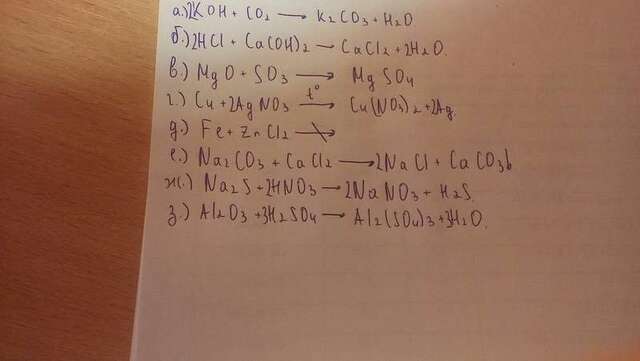 а.) 2KOH + CO₂ → K₂CO₃ + H₂O
б.) 2HCl + Ca(OH)₂ → CaCl₂ + 2H₂O.
в.) MgO + SO₃ → MgSO₄
г.) Cu + 2AgNO₃ t° → Cu(NO₃)₂ + 2Ag.
д.) Fe + ZnCl₂ ↛
е.) Na₂CO₃ + CaCl₂ → 2NaCl + CaCO₃↓
ж.) Na₂S + 2HNO₃ → 2NaNO₃ + H₂S.
з.) Al₂O₃ + 3H₂SO₄ → Al₂(SO₄)₃ + 3H₂O.